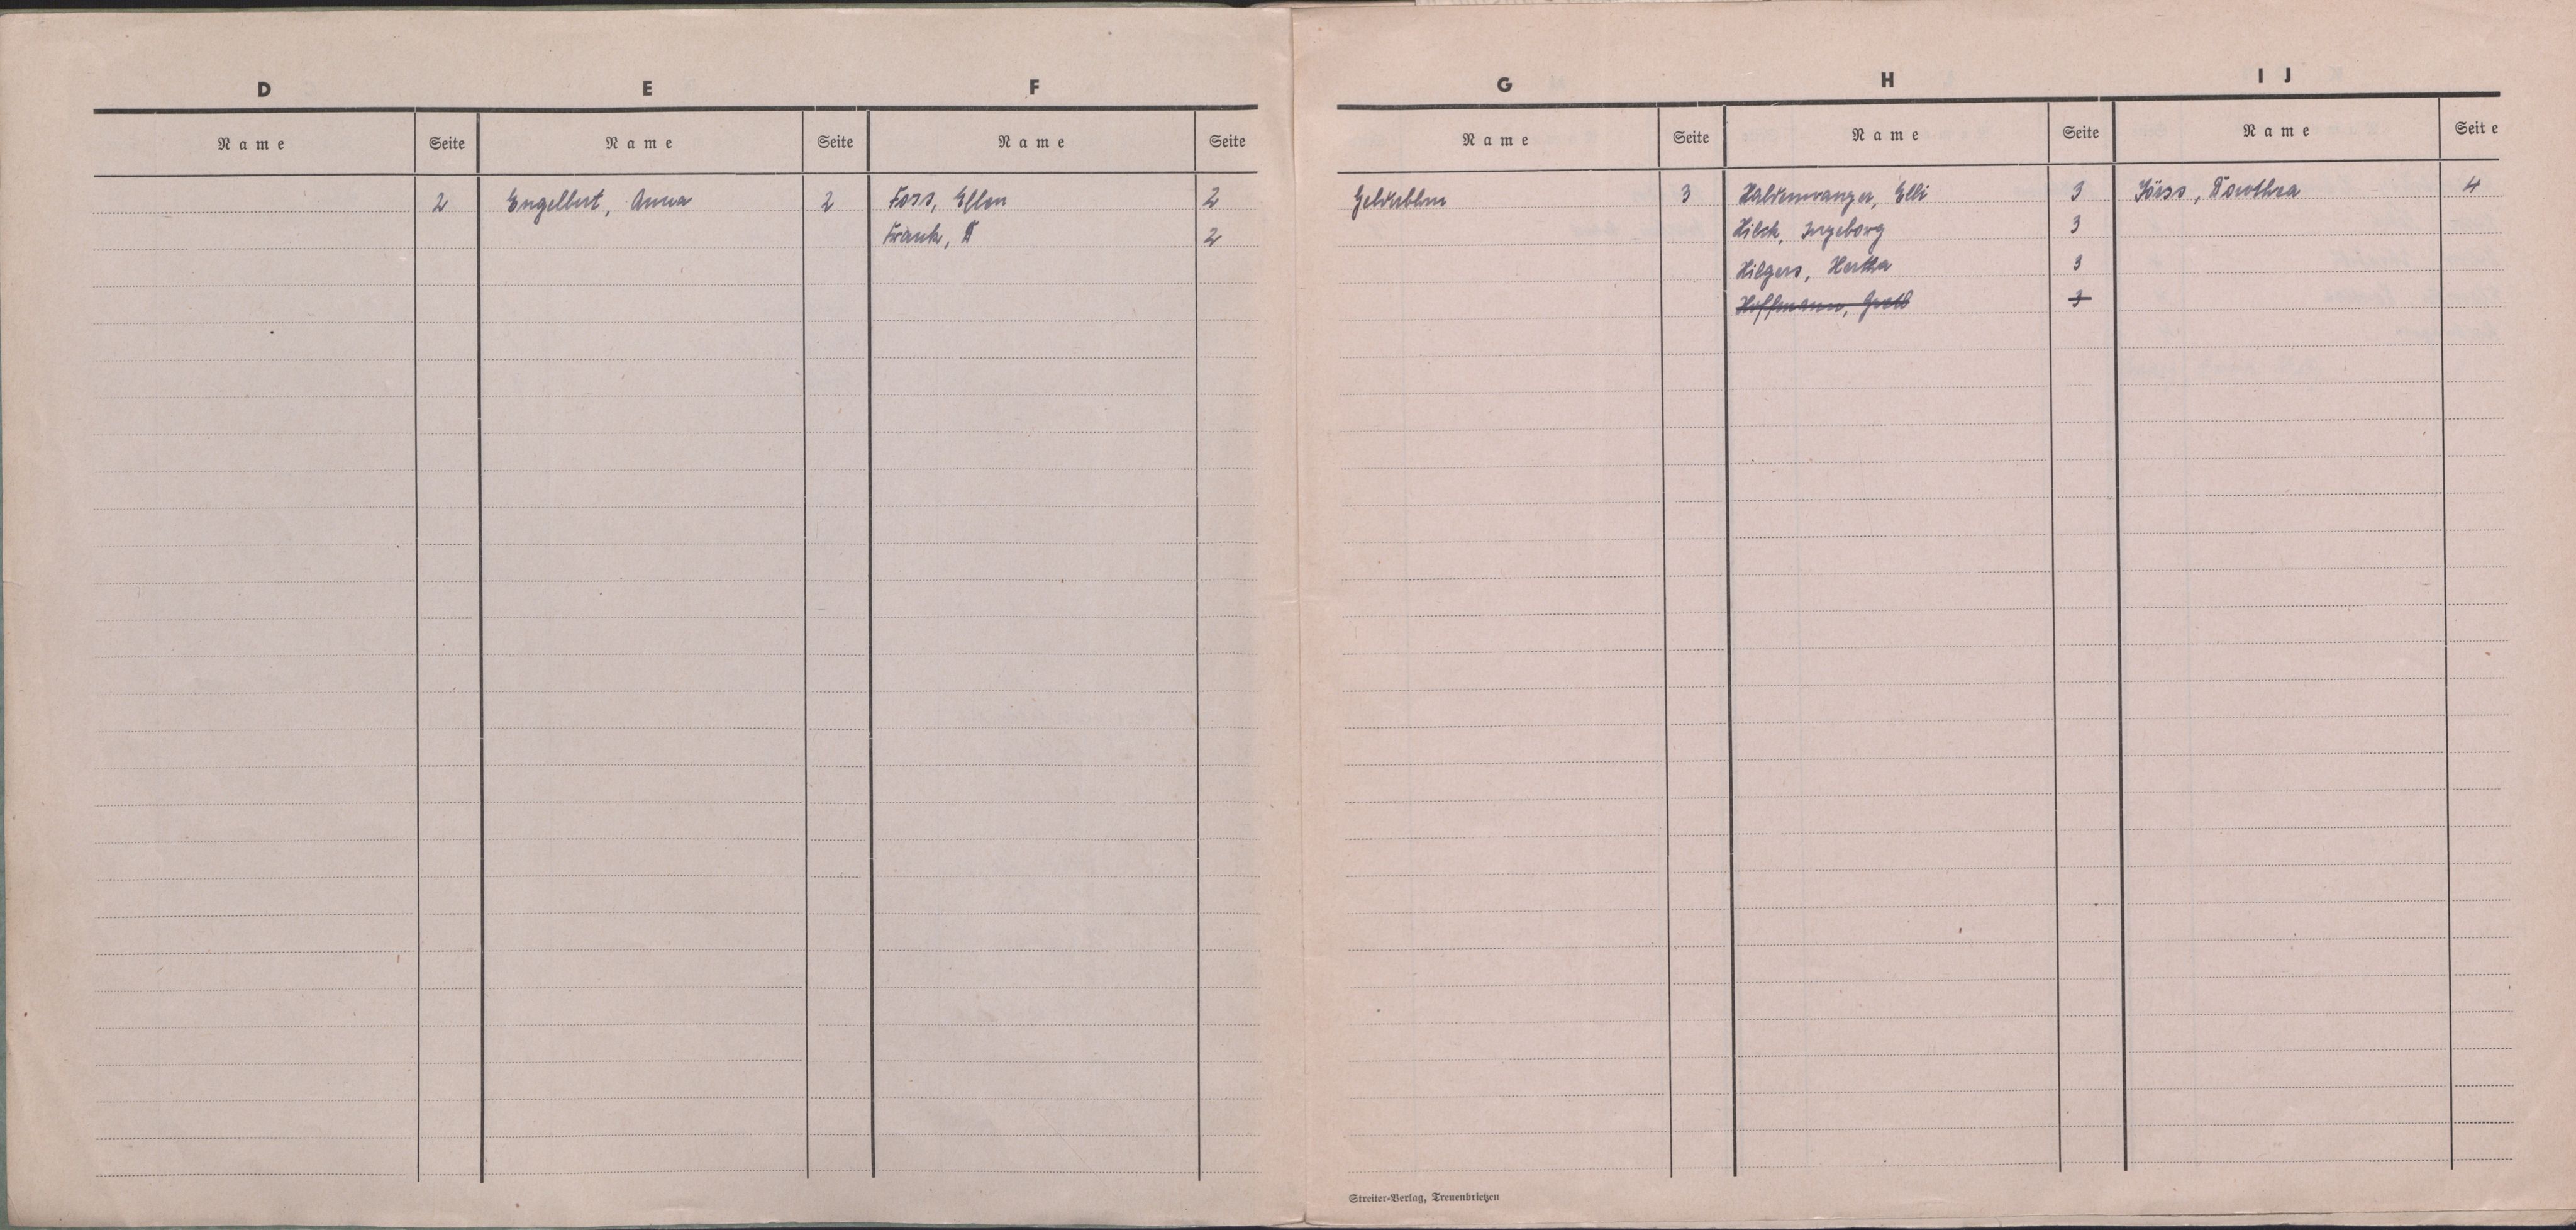 D E F G H I J
Name Seite Name Seite Name Seite Name Seite Name Seite Name Seite
2 Engelbert, Anna 2 Foss, Ellen 2 3 Haldenwanger, Elli 3 Jöess, Dorothea 4
Frank, D 2 Hilck, Ingeborg 3
Hilgers, Hertha 3
Hoffmann, Gretl 3
Streiter-Verlag, Treuenbrietzen